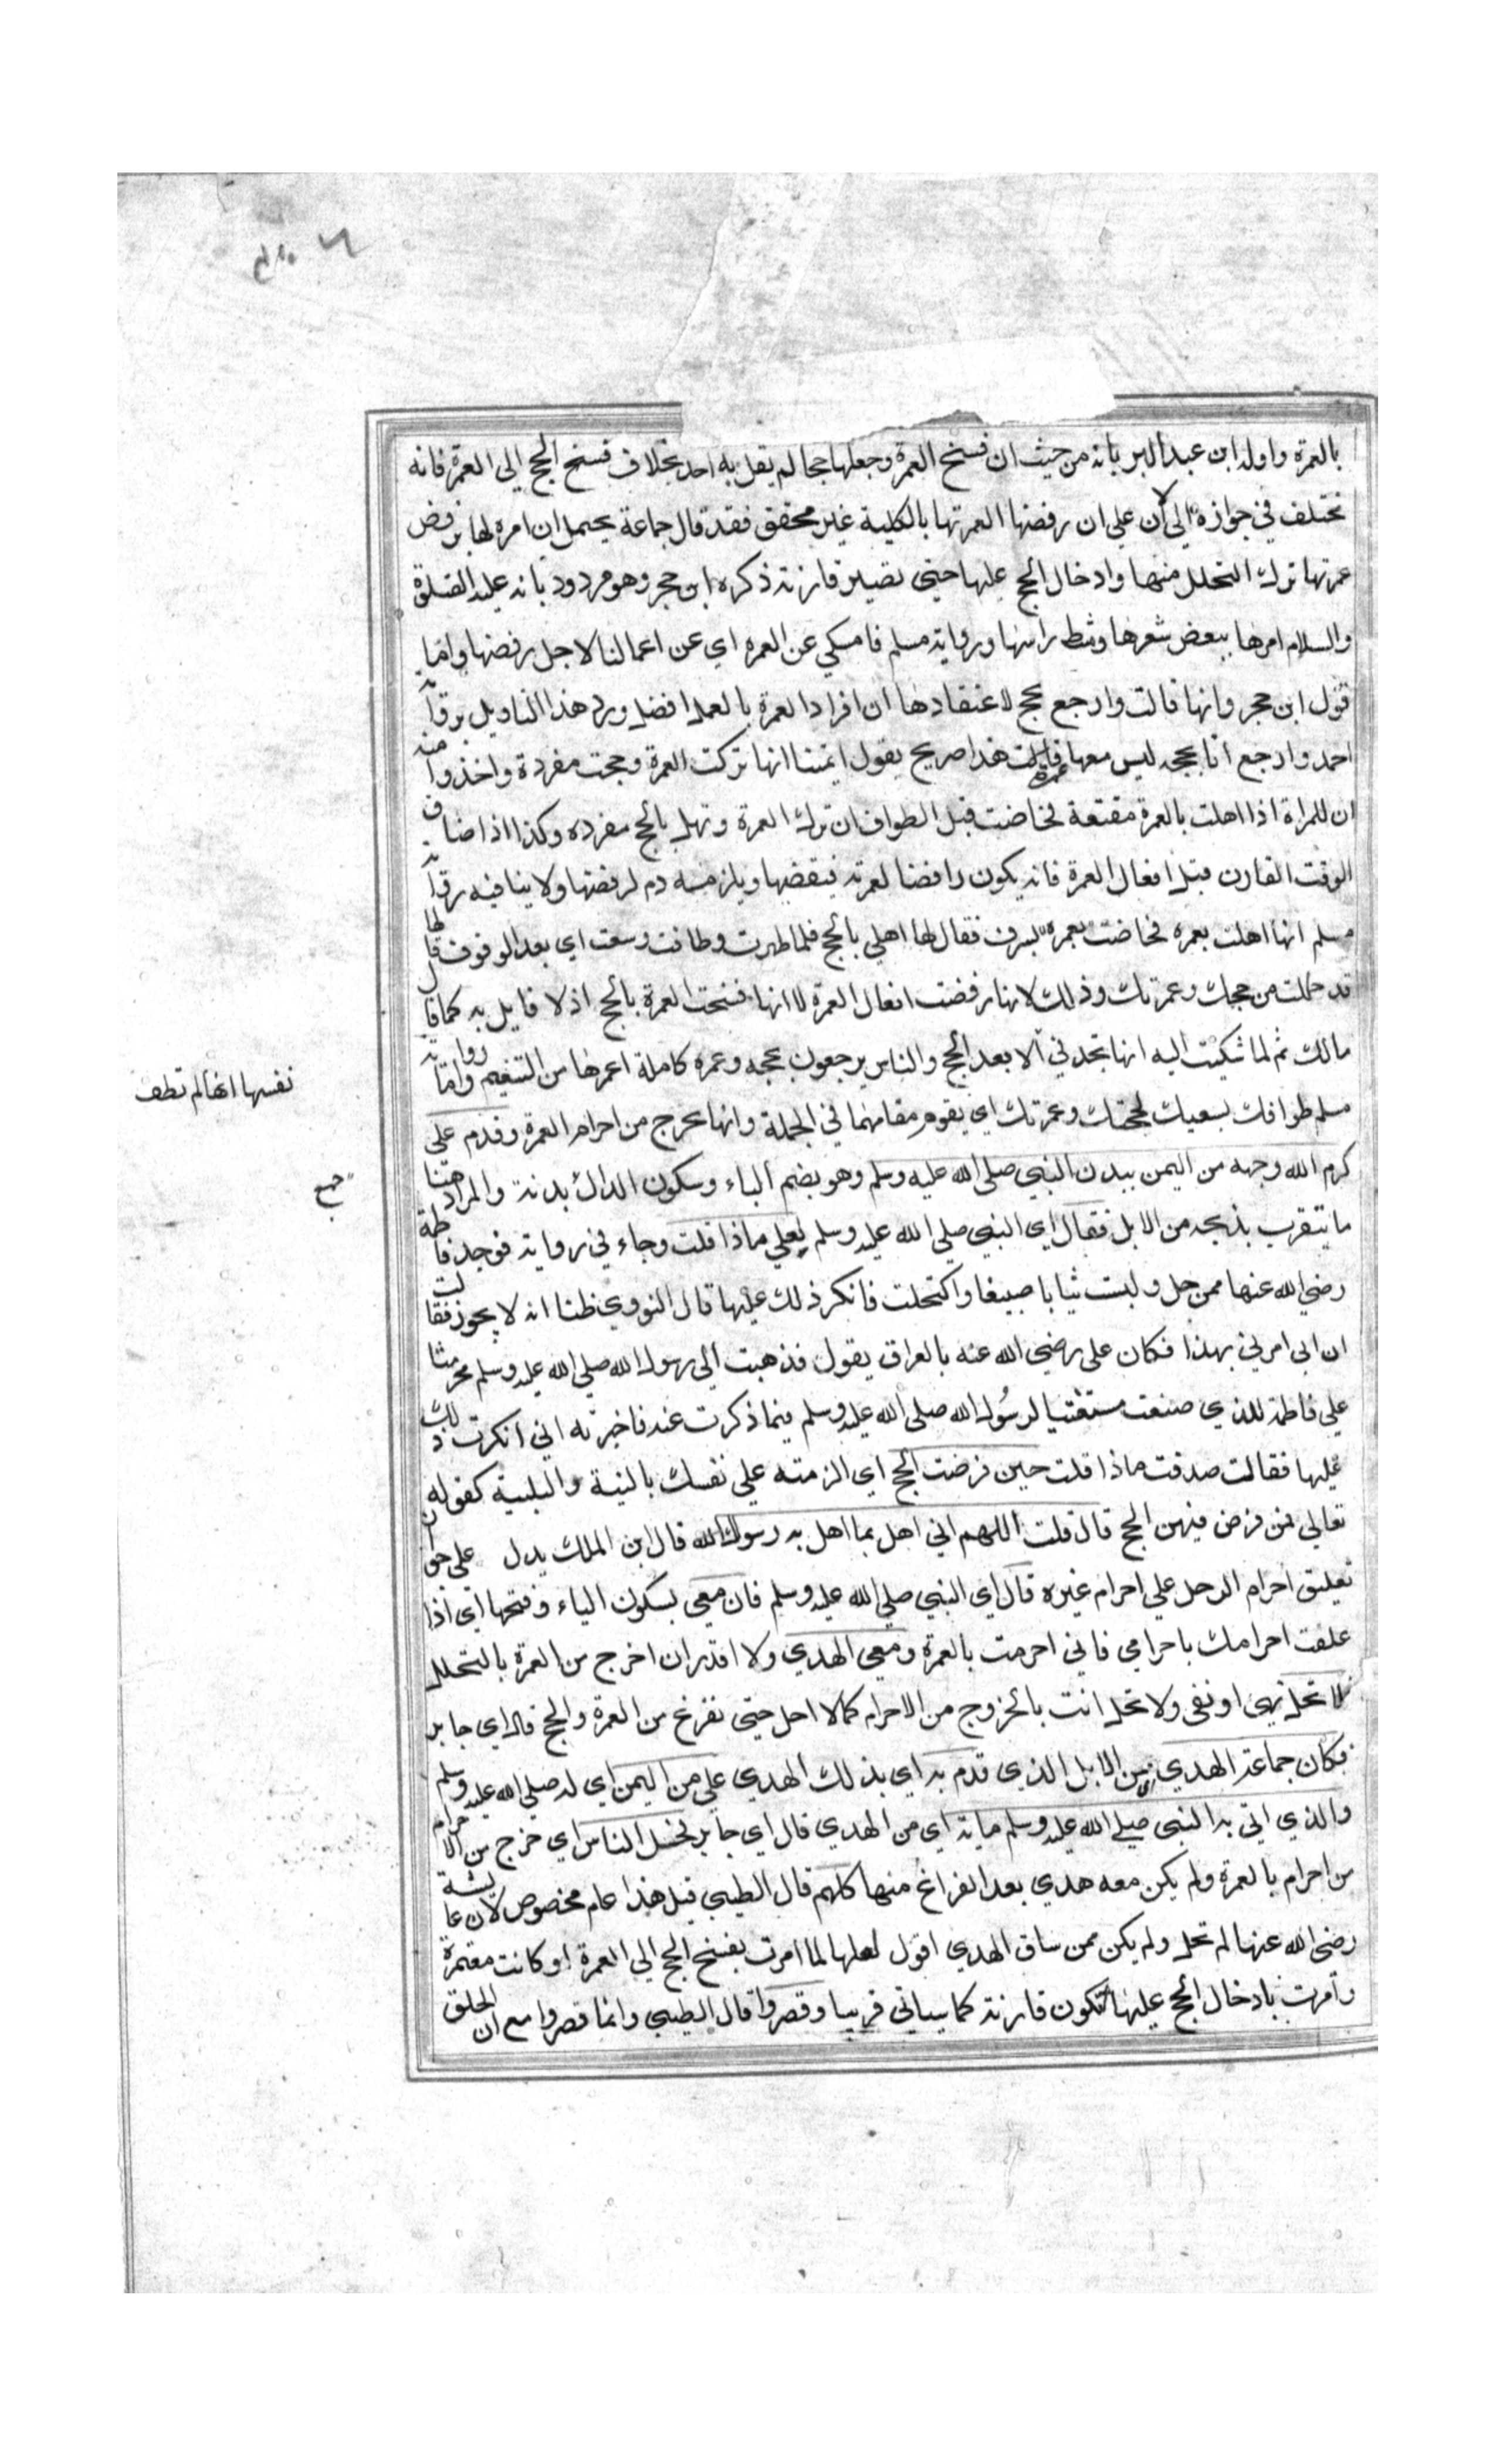 بالعمرة واوله ابن عبدالبر بانه من حيث ان فسخ العمرة وجعلها حجا لم يقل به احد بخلاف فسخ الحج الى العمرة فانه
مختلف في جوازه الى الان على ان رفضها العمرتها بالكلية غير محقق فقد قال جماعة يحتمل ان امره لها برفض
عمرتها ترك التحلل منها وادخال الحج عليها حتى تصير قارنة ذكره ابن حجر وهو مردود بانه عليه الصلوة
والسلام امرها ببعض شعرها ومشط راسها ورواية مسلم فامسكي عن العمرة اي عن اعمالنا لاجل رفضها واما
قول ابن حجر وانها قالت وارجع بحج لاعتقادها ان افراد العمرة بالعمل افضل ورد هذا التاويل برواية
احمد وارجع انا بحجه ليس معها عمرة قالت هذا صريح يقول ائمتنا انها تركت العمرة وحجت مفردة واخذوا منه
ان للمراة اذا اهلت بالعمرة متمتعة فحاضت قبل الطواف ان تترك العمرة وتهل بالحج مفرده وكذا اذا ضاق
الوقت القارن قبل افعال العمرة فانه يكون رافضا لعمرته فيقضيها ويلزمه دم لرفضها ولا ينافيه رواية
مسلم انها اهلت بعمره فحاضت بعمره بسرف فقال لها اهلي بالحج فلما طهرت وطافت وسعت اي بعد الوقوف قال لها
قد حللت من حجك وعمرتك وذلك لانها رفضت افعال العمرة لا انها فسخت العمرة بالحج اذ لا قايل به كما قا
مالك ثم لما شكيت اليه انها تجد في نفسها انها لم تطف الا بعد الحج والناس يرجعون بحجه وعمره كاملة اعمرها من التنعيم واما رواية
مسلم طوافك بسعيك لحجتك وعمرتك اي يقوم مقامهما في الجملة وانها تخرج من احرام العمرة وقدم علي
كرم الله وجهه من اليمن ببدن النبي صلى الله عليه وسلم وهو بضم الباء وسكون الدال جمع بدنة والمراد هنا
ما يتقرب بذبحه من الابل فقال اي النبي صلى الله عليه وسلم لعلي ماذا قلت وجاء في رواية فوجد فاطمة
رضي الله عنها ممن حل ولبست ثيابا صبيغا واكتحلت فانكر ذلك عليها قال النووي ظنا انه لا يجوز فقالت
ان ابي امرني بهذا فكان علي رضي الله عنه بالعراق يقول فذهبت الى رسول الله صلى الله عليه وسلم محرشا
على فاطمة للذي صنعت مستفتيا لرسول الله صلى الله عليه وسلم فيما ذكرت عنه فاخبرته اني انكرت ذلك
عليها فقالت صدقت ماذا قلت حين فرضت الحج اي الزمته على نفسك بالنية والتلبية كقوله
تعالى فمن فرض فيهن الحج قال قلت اللهم اني اهل بما اهل به رسولك الله قال ابن الملك يدل على جواز
تعليق احرام الرجل على احرام غيره قال اي النبي صلى الله عليه وسلم فان معي بسكون الياء وفتحها اي اذا
علقت احرامك باحرامي فاني احرمت بالعمرة ومعي الهدي ولا اقدر ان اخرج من العمرة بالتحلل
فلا تحل نهي او نفي ولا تحل انت بالخروج من الاحرام كما لا احل حتى نفرغ من العمرة والحج قال اي جابر
فكان جماعة الهدي من الابل الذي قدم به اي بذلك الهدي علي من اليمن اي له صلى الله عليه وسلم
والذي اتى به النبي صلى الله عليه وسلم ماية اي من الهدي قال اي جابر فحل الناس اي خرج من الاحرام
من احرام بالعمرة ولم يكن معه هدي بعد الفراغ منها كلهم قال الطيبي قيل هذا عام مخصوص لان عايشة
رضي الله عنها لم تحل ولم يكن ممن ساق الهدي اقول لعلها لما امرت بفسخ الحج الى العمرة او كانت معتمرة
وامرت بادخال الحج عليها لتكون قارنة كما سياتي قريبا وقصروا قال الطيبي وانما قصروا مع ان الحلق
نفسها انها لم تطف
جمع